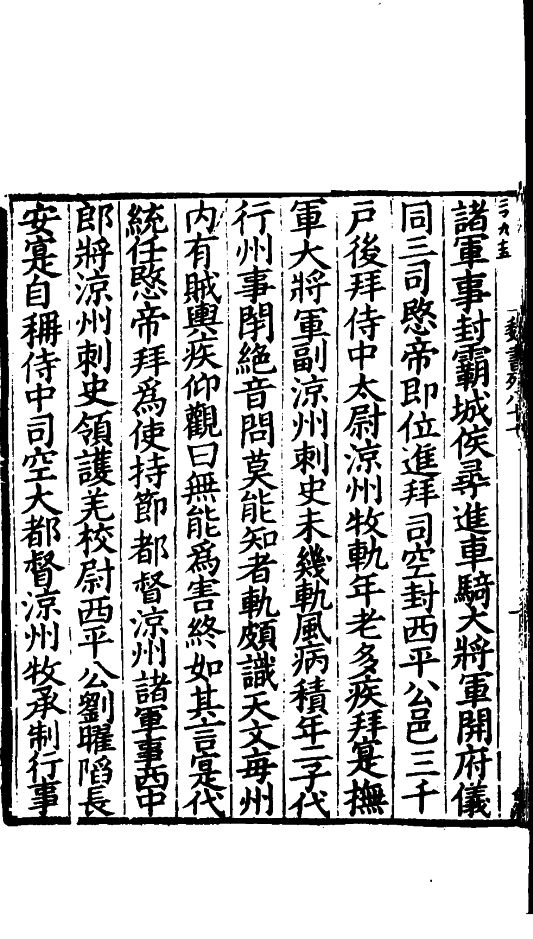 諸軍事封霸城侯尋進車騎大將軍開府儀
同三司愍帝即位進拜司空封西平公邑三千
戶後拜侍中太尉涼州牧軌年老多疾拜寔撫
軍大將軍副涼州刺史未幾軌風病積年二子代
行州事閉絕音問莫能知者軌頗識天文每州
内有賊輿疾仰觀曰無能爲害終如其言寔代
統任愍帝拜爲使持節都督涼州諸軍事西中
郎將涼州刺史領護羌校尉西平公劉曜陷長
安寔自稱侍中司空大都督涼州牧承制行事